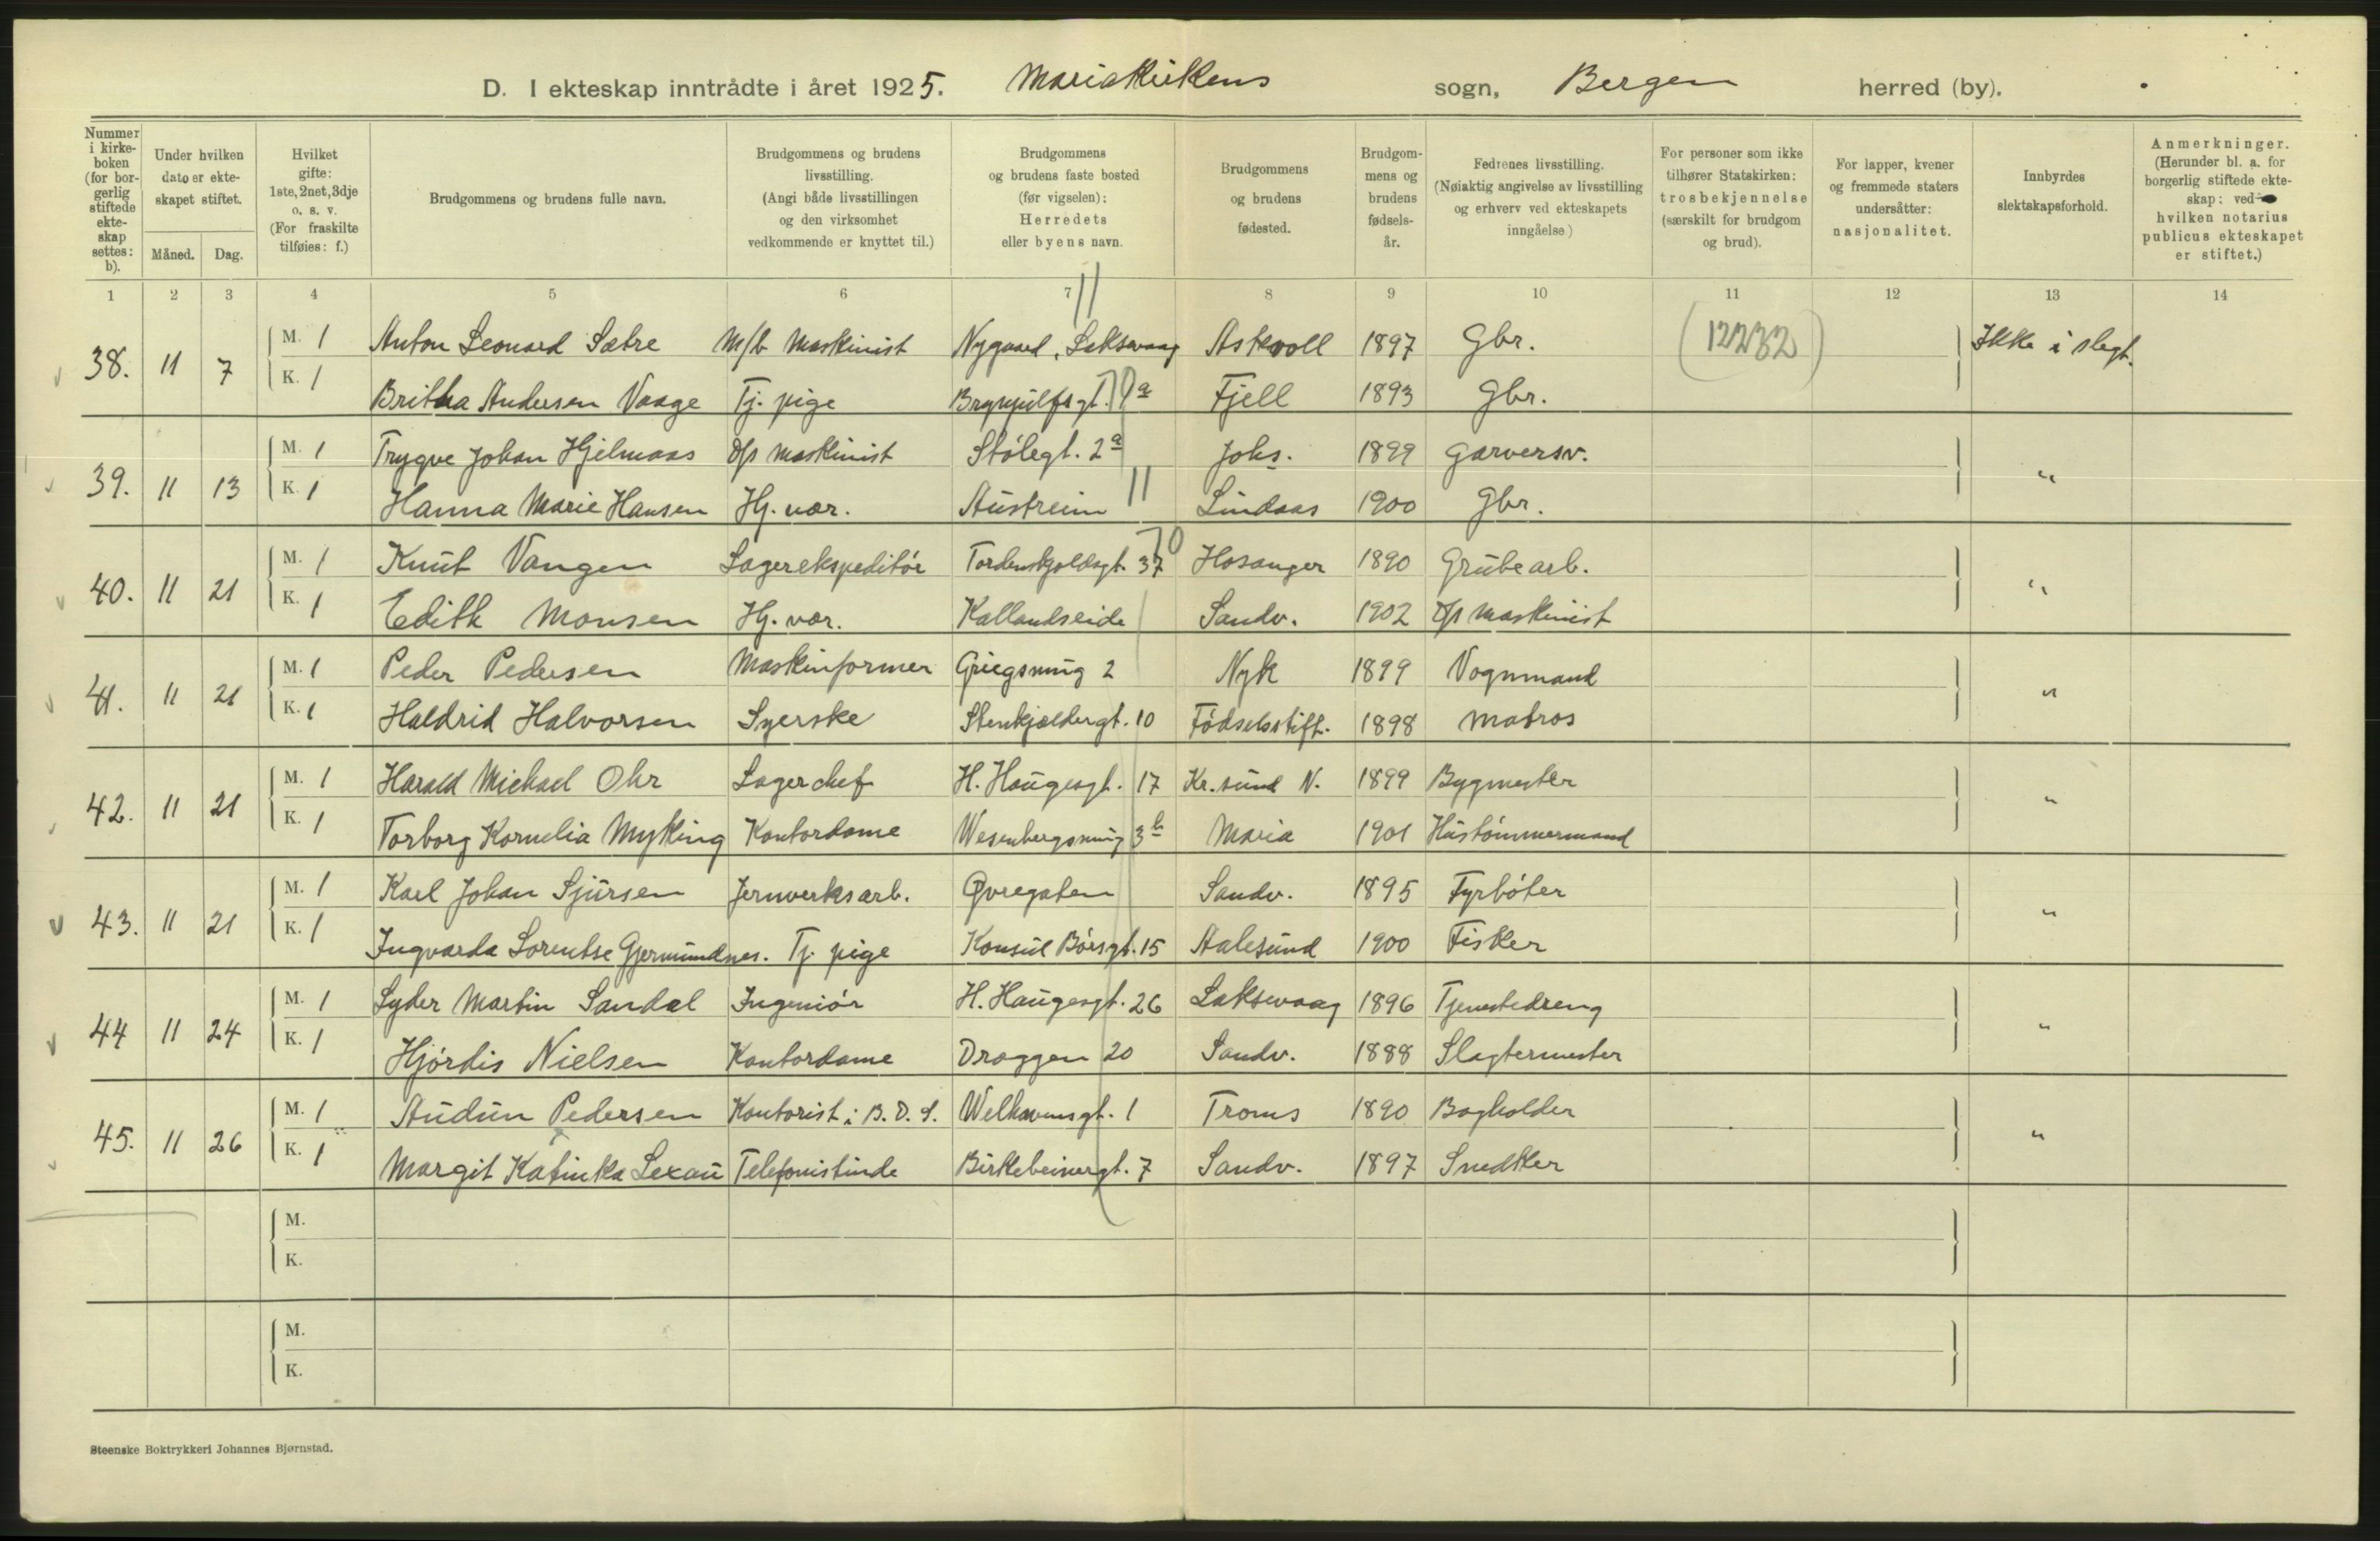 D. I ekteskap inntrådte i året 1925. Mariakirkens sogn, Bergen herred (by).
Nummer i kirkeboken (for borgerlig stiftede ekteskap settes: b).
Under hvilken dato er ekteskapet stiftet.
Måned. Dag.
Hvilket gifte: 1ste, 2net, 3dje o. s. v. (For fraskilte tilføies: f.)
Brudgommens og brudens fulle navn.
Brudgommens og brudens livsstilling. (Angi både livsstillingen og den virksomhet vedkommende er knyttet til.)
Brudgommens og brudens faste bosted (før vigselen): Herredets eller byens navn.
Brudgommens og brudens fødested.
Brudgommens og brudens fødselsår.
Fedrenes livsstilling. (Nøiaktig angivelse av livsstilling og erhverv ved ekteskapets inngåelse.)
For personer som ikke tilhører Statskirken: trosbekjennelse (særskilt for brudgom og brud).
For lapper, kvener og fremmede staters undersåtter: nasjonalitet.
Innbyrdes slektskapsforhold.
Anmerkninger. (Herunder bl. a. for borgerlig stiftede ekteskap: ved hvilken notarius publicus ekteskapet er stiftet.)
1 2 3 4 5 6 7 8 9 10 11 12 13 14
38. 11 7 M. 1 Anton Leonard Sætre M/b Maskinist Nygaard, Laksevaag Askvoll 1897 Gbr. (12232) Ikke i slegt.
K. 1 Britha Andersen Vaage Tj. pige Brynjulfsgt. 70a Fjell 1893 Gbr.
39. 11 13 M. 1 Trygve Johan Hjelmaas D/s Maskinist Stølegt. 2a Johs. 1899 Garversv. "
K. 1 Hanna Marie Hansen Hj. vær. Austreim 11 Lindaas 1900 Gbr.
40. 11 21 M. 1 Knut Vangen Lagerekspeditör Tordenskjoldsgt. 37 Hosanger 1890 Grubearb. "
K. 1 Edith Monsen Hj. vær. Kallandseide Sandv. 1902 D/s Maskinist
41. 11 21 M. 1 Peder Pedersen Maskinformer Griegsmug 2 Nyk 1899 Vognmand "
K. 1 Haldrid Halvorsen Syerske Stenkjældergt. 10 Fødselsstift. 1898 Matros
42. 11 21 M. 1 Harald Michael Ohr Lagerchef H. Haugesgt. 17 Kr. sund N. 1899 Bygmester "
K. 1 Torborg Kornelia Myking Kontordame Wesenbergsmug 3b Maria 1901 Hustømmermand
43. 11 21 M. 1 Karl Johan Sjursen Jernverksarb. Øvregaten Sandv. 1895 Fyrbøter "
K. 1 Ingvarda Lorentse Gjermundnes. Tj. pige Konsul Børsgt. 15 Aalesund 1900 Fisker
44 11 24 M. 1 Lyder Martin Sandal Ingeniør H. Haugesgt. 26 Laksevaag 1896 Tjenestedreng "
K. 1 Hjørdis Nielsen Kontordame Dræggen 20 Sandv. 1888 Slagtermester
45. 11 26 M. 1 Audun Pedersen Kontorist i B. D. S. Welhavensgt. 1 Troms 1890 Bogholder "
K. 1 Margit Katinka Lexau Telefonistinde Birkebeinergt. 7 Sandv. 1897 Snedker
M.
K.
M.
K.
Steenske Boktrykkeri Johannes Bjørnstad.